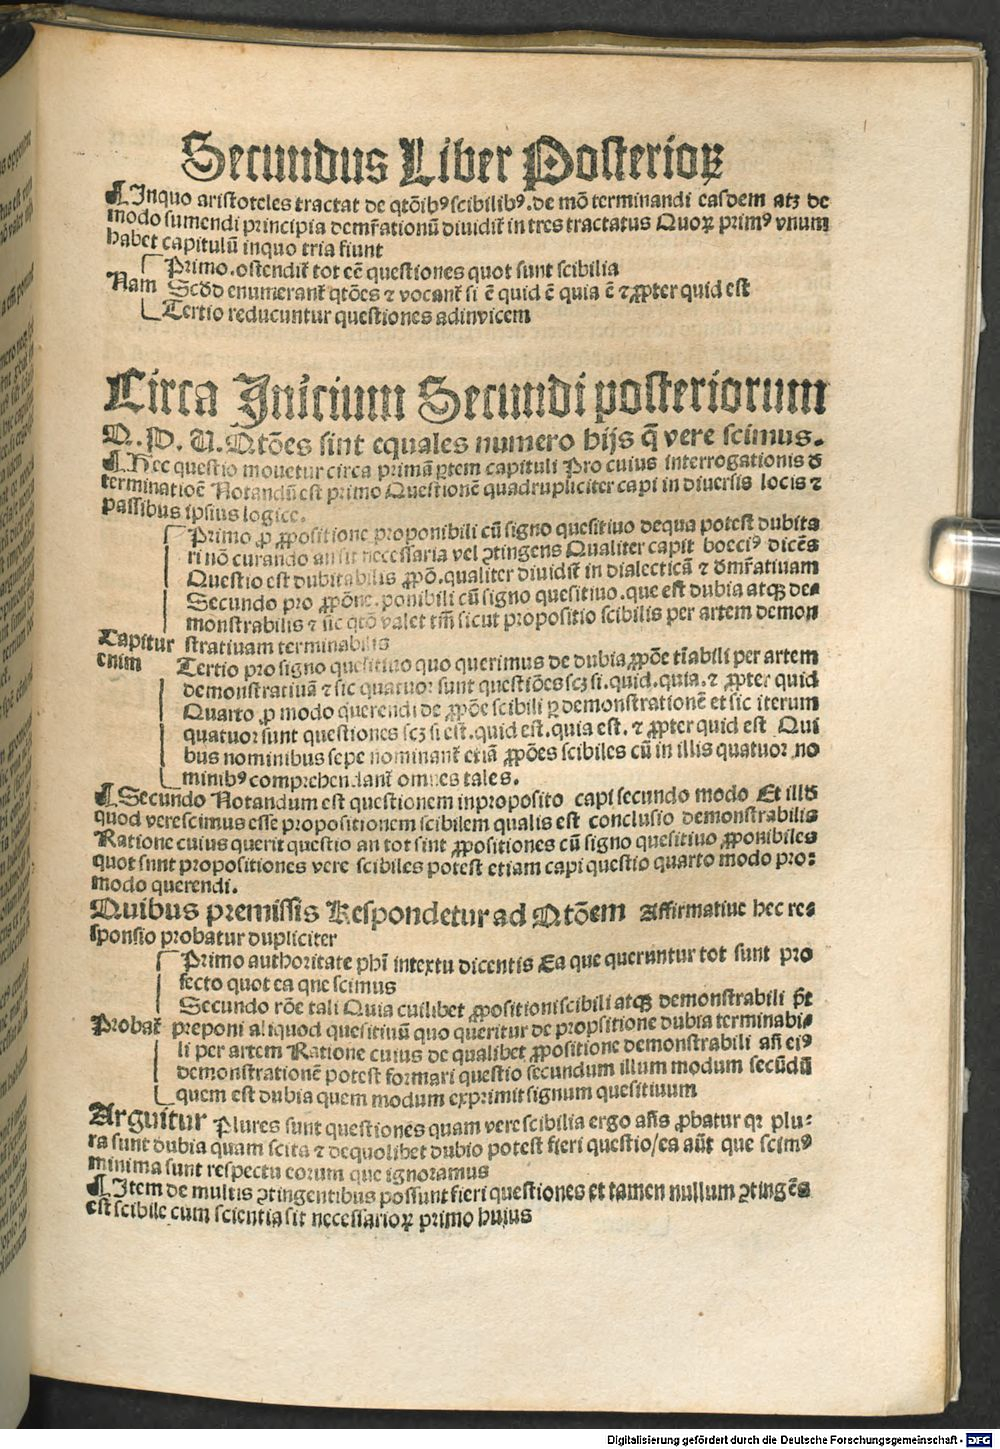 Secundus Liber Posterioꝝ
¶ Inquo aristoteles tractat de qtõibꝰ scibilibꝰ. de mõ terminandi easdem atꝫ de
modo sumendi principia demr̃ationũ diuidit̃ in tres tractatus Quoꝝ primꝰ vnum
habet capitulũ inquo tria fiunt
Primo. ostendit̃ tot eẽ questiones quot sunt scibilia
Nam Scðo enumerant̃ qtões ⁊ vocant̃ si ẽ quid ẽ quia ẽ ⁊ ꝓpter quid est
Tertio reducuntur questiones adinvicem
Circa Inicium Secundi posteriorum
Q. P. U. Qtões sint equales numero hijs q̃ vere scimus.
¶ Hec questio mouetur circa primã ꝑtem capituli Pro cuius interrogationis ð
terminatioẽ Notandũ est primo Questionẽ quadrupliciter capi in diuersis locis ⁊
passibus ipsius logice.
Primo ꝓ ꝓpositione proponibili cũ signo quesitiuo dequa potest dubita
ri nõ curando an sit necessaria vel ꝯtingens Qualiter capit boeciꝰ dicẽs
Questio est dubitabilis ꝓpõ. qualiter diuidit̃ in dialecticã ⁊ ðmr̃atiuam
Secundo pro ꝓpõne. ponibili cũ signo quesitiuo. que est dubia atqꝫ de⸗
monstrabilis ⁊ sic qtõ valet tm̃ sicut propositio scibilis per artem demon
Capitur stratiuam terminabilis
enim Tertio pro signo quesitiuo quo querimus de dubia ꝓpõe tĩabili per artem
demonstratiuã ⁊ sic quatuor sunt questiões scꝫ si. quid. quia. ⁊ ꝓpter quid
Quarto ꝓ modo querendi de ꝓpõe scibili ꝑ demonstrationẽ et sic iterum
quatuor sunt questiones scꝫ si est. quid est. quia est. ⁊ ꝓpter quid est Qui
bus nominibus sepe nominant̃ etiã ꝓpões scibiles cũ in illis quatuor no
minibꝰ comprehendant̃ omnes tales.
¶ Secundo Notandum est questionem inproposito capi secundo modo Et illð
quod vere scimus esse propositionem scibilem qualis est conclusio demonstrabilis
Ratione cuius querit questio an tot sint ꝓpositiones cũ signo quesitiuo ꝓponibiles
quot sunt propositiones vere scibiles potest etiam capi questio quarto modo pro⸗
modo querendi.
Quibus premissis Respondetur ad Qtõem Affirmatiue hec re⸗
sponsio probatur dupliciter
Primo authoritate phĩ intextu dicentis Ea que queruntur tot sunt pro
fecto quot ea que scimus
Secundo rõe tali Quia cuilibet ꝓpositioni scibili atqꝫ demonstrabili pt̃
Probat̃ preponi aliquod quesitiuũ quo queritur de propsitione dubia terminabi⸗
li per artem Ratione cuius de qualibet ꝓpositione demonstrabili añ eiꝰ
demonstrationẽ potest formari questio secundum illum modum secũdũ
quem est dubia quem modum exprimit signum quesitiuum
Arguitur Plures sunt questiones quam vere scibilia ergo añs ꝓbatur qꝛ plu⸗
ra sunt dubia quam scita ⁊ dequolibet dubio potest fieri questio/ea aũt que scimꝰ
minima sunt respectu eorum que ignoramus
¶ Item de multis ꝯtingentibus possunt fieri questiones et tamen nullum ꝯtingẽs
est scibile cum scientia sit necessarioꝝ primo huius
Digitalisierung gefördert durch die Deutsche Forschungsgemeinschaft - DFG